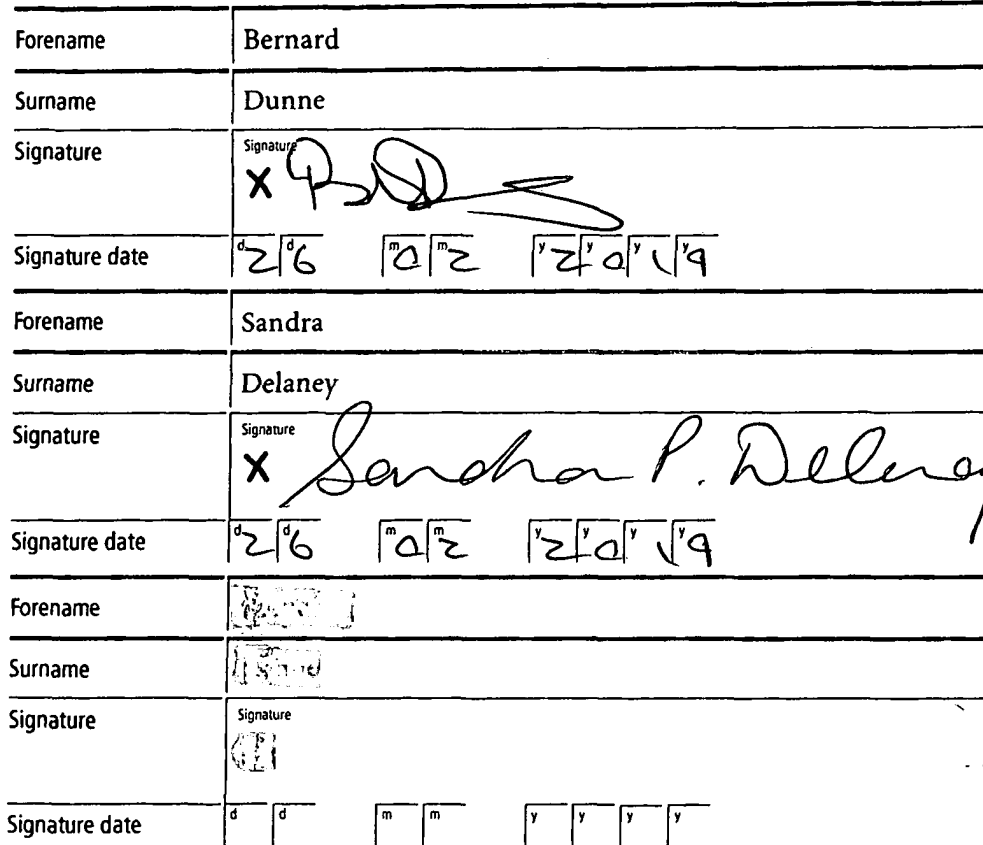 Forename Bernard
Surname Dunne
Signature Signature
X
Signature date d2 d6 m0 m2 y2 y0 y1 y9
Forename Sandra
Surname Delaney
Signature Signature
X Sandra P. Delaney
Signature date d2 d6 m0 m2 y2 y0 y1 y9
Forename
Surname
Signature Signature
Signature date d d m m y y y y